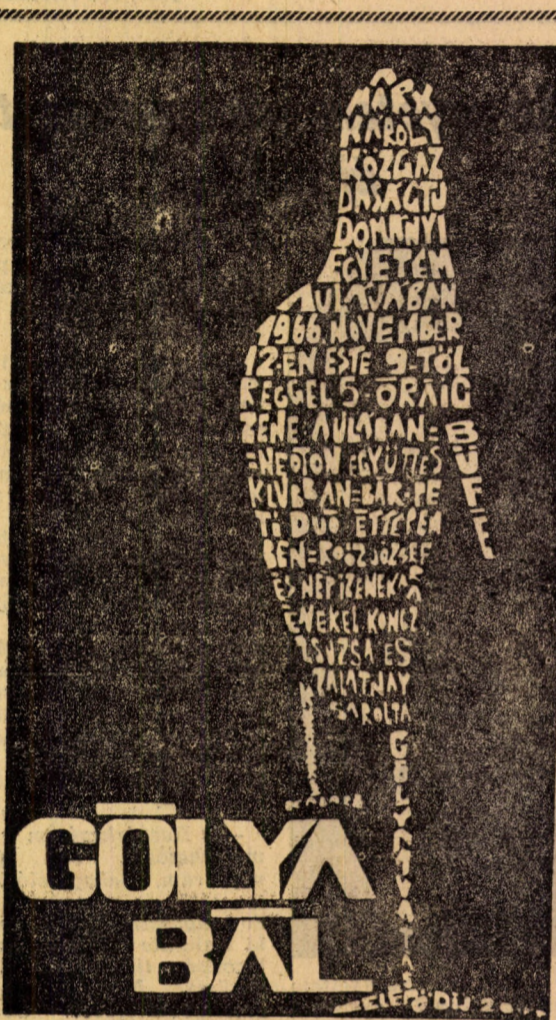 MARX
KÁROLY
KÖZGAZ
DASÁGTU
DOMÁNYI
EGYETEM
AULÁJÁBAN
1966. NOVEMBER
12-ÉN ESTE 9-TŐL
REGGEL 5 ÓRÁIG
ZENE AULÁBAN=
=NEOTON EGYÜTTES
KLUBBAN=BÁR=PE
TI DUÓ ÉTTEREM
BEN=ROÓZ JÓZSEF
ÉS NÉPI ZENEKARA
ÉNEKEL KONCZ
ZSUZSA ÉS
ZALATNAY
SAROLTA
BÜFÉ
KABARÉ
GÓLYAAVATÁS
GÓLYA
BÁL
BELÉPŐDÍJ 20